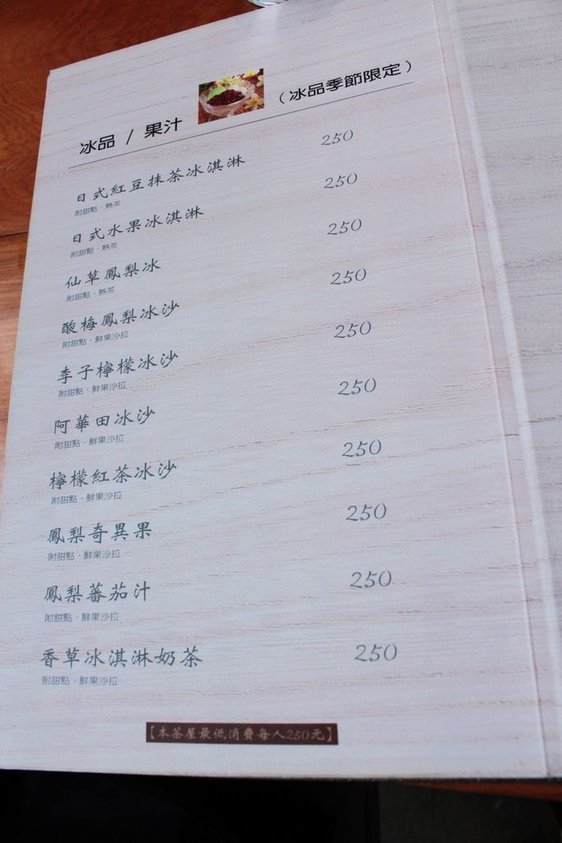 冰品 / 果汁 （冰品季節限定）
日式紅豆抹茶冰淇淋 250
附甜點、熱茶
日式水果冰淇淋 250
附甜點、熱茶
仙草鳳梨冰 250
附甜點、熱茶
酸梅鳳梨冰沙 250
附甜點、鮮果沙拉
李子檸檬冰沙 250
附甜點、鮮果沙拉
阿華田冰沙 250
附甜點、鮮果沙拉
檸檬紅茶冰沙 250
附甜點、鮮果沙拉
鳳梨奇異果 250
附甜點、鮮果沙拉
鳳梨蕃茄汁 250
附甜點、鮮果沙拉
香草冰淇淋奶茶 250
附甜點、鮮果沙拉
【本茶屋最低消費每人250元】